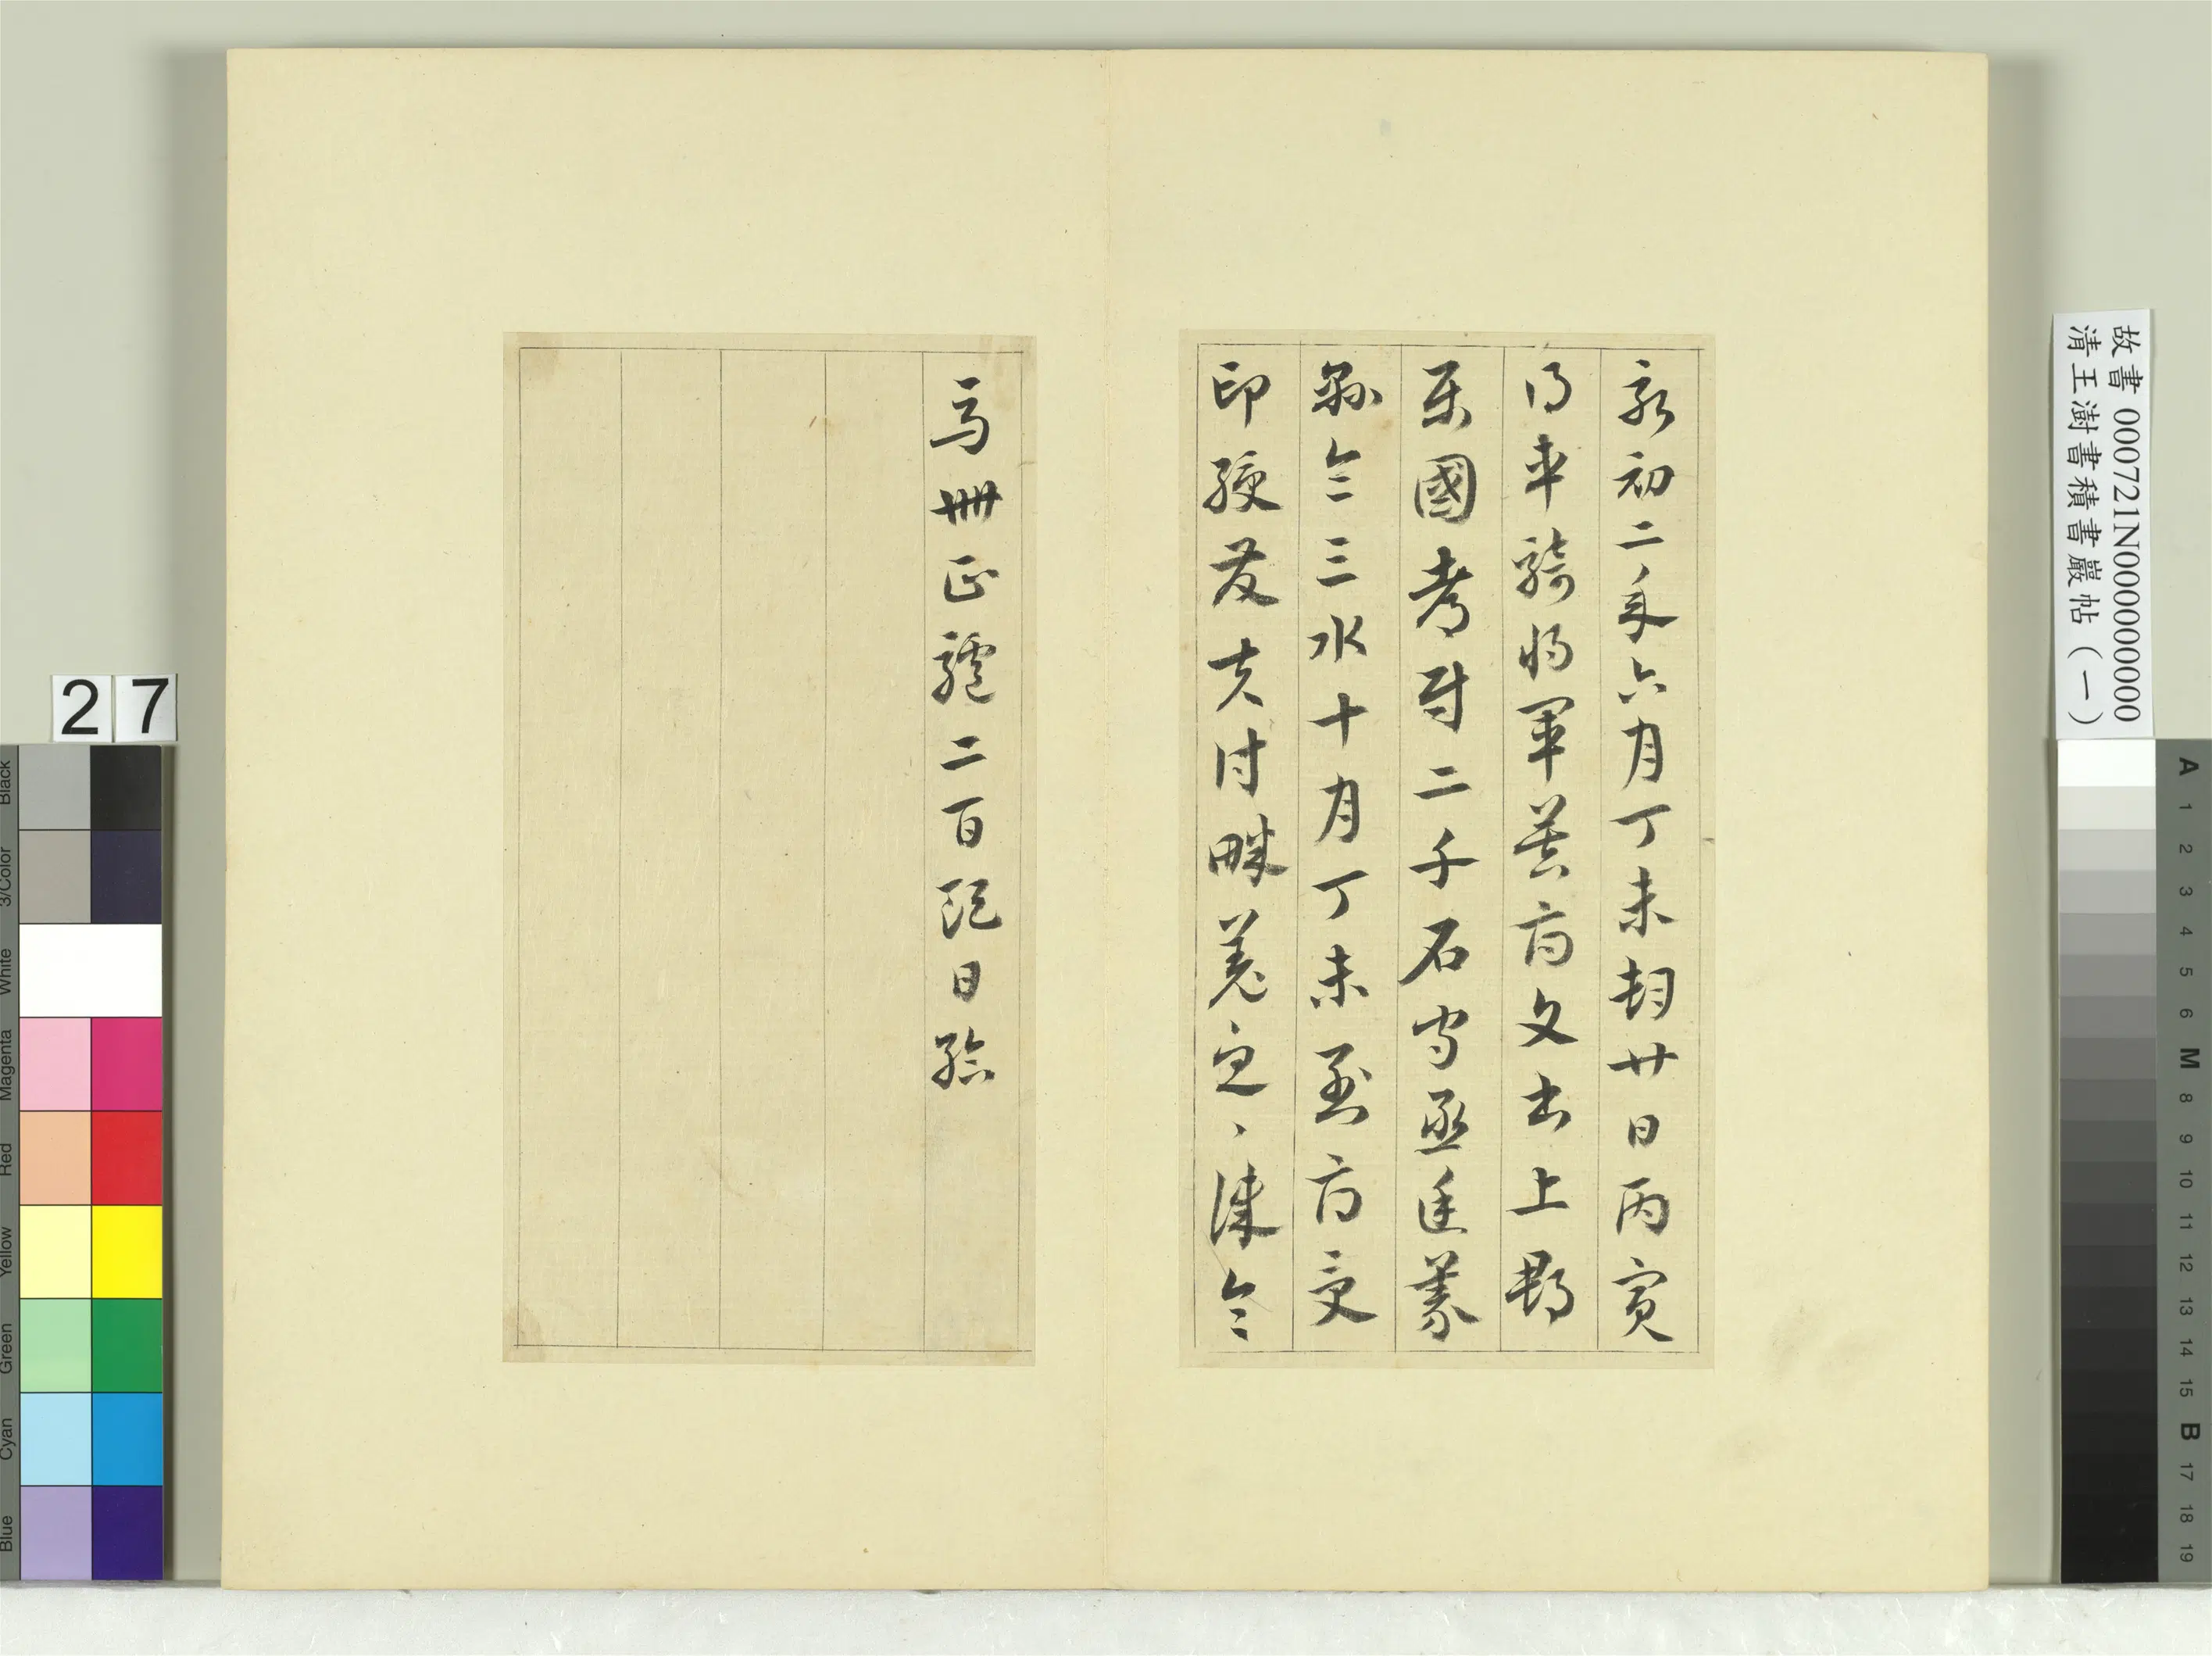 永初二年六月丁未朔廿日丙寅
得車騎將軍莫府文書上郡
屬國都尉二千石守丞廷義
縣令三水十月丁未到府受
印綬發夫討畔羌急、律令
馬卌匹驢二百頭日給
故書 000721N000000000
清王澍書積書巖帖（一）
27
Black
3/Color
White
Magenta
Red
Yellow
Green
Cyan
Blue
A
1
2
3
4
5
6
M
8
9
10
11
12
13
14
15
B
17
18
19